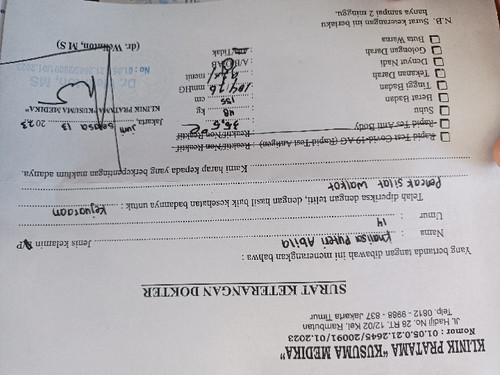 KLINIK PRATAMA "KUSUMA MEDIKA"
Nomor : 01.05.01.21.2645/20091/01.2023
Jl. Hadiji No. 28 RT. 12/02 Kel. Rambutan
Telp. 0812 - 9988 - 837 Jakarta Timur
SURAT KETERANGAN DOKTER
Yang bertanda tangan dibawah ini menerangkan bahwa :
Nama : Khalisa Puteri Abila Jenis kelamin P
Umur : 14
Telah diperiksa, dengan teliti, dengan hasil baik kesehatan badannya untuk : Kejuaraan
Pencak silat Walkot
Kami harap kepada yang berkepentingan maklum adanya.
Rapid Test Covid-19 AG (Rapid Test Antigen) : Reaktif/Non Reaktif
Rapid Tes Anti Body : Reaktif/Non Reaktif
Suhu : 35,5 °C
Berat Badan : 48 kg
Tinggi Badan : 155 cm
Tekanan Darah : mmHG
Denyut Nadi : menit
Golongan Darah : A/B/O/AB
Buta Warna : Ya/Tidak
Jakarta, 13 2023
KLINIK PRATAMA "KUSUMA MEDIKA"
N.B. Surat keterangan ini berlaku
hanya sampai 2 minggu.